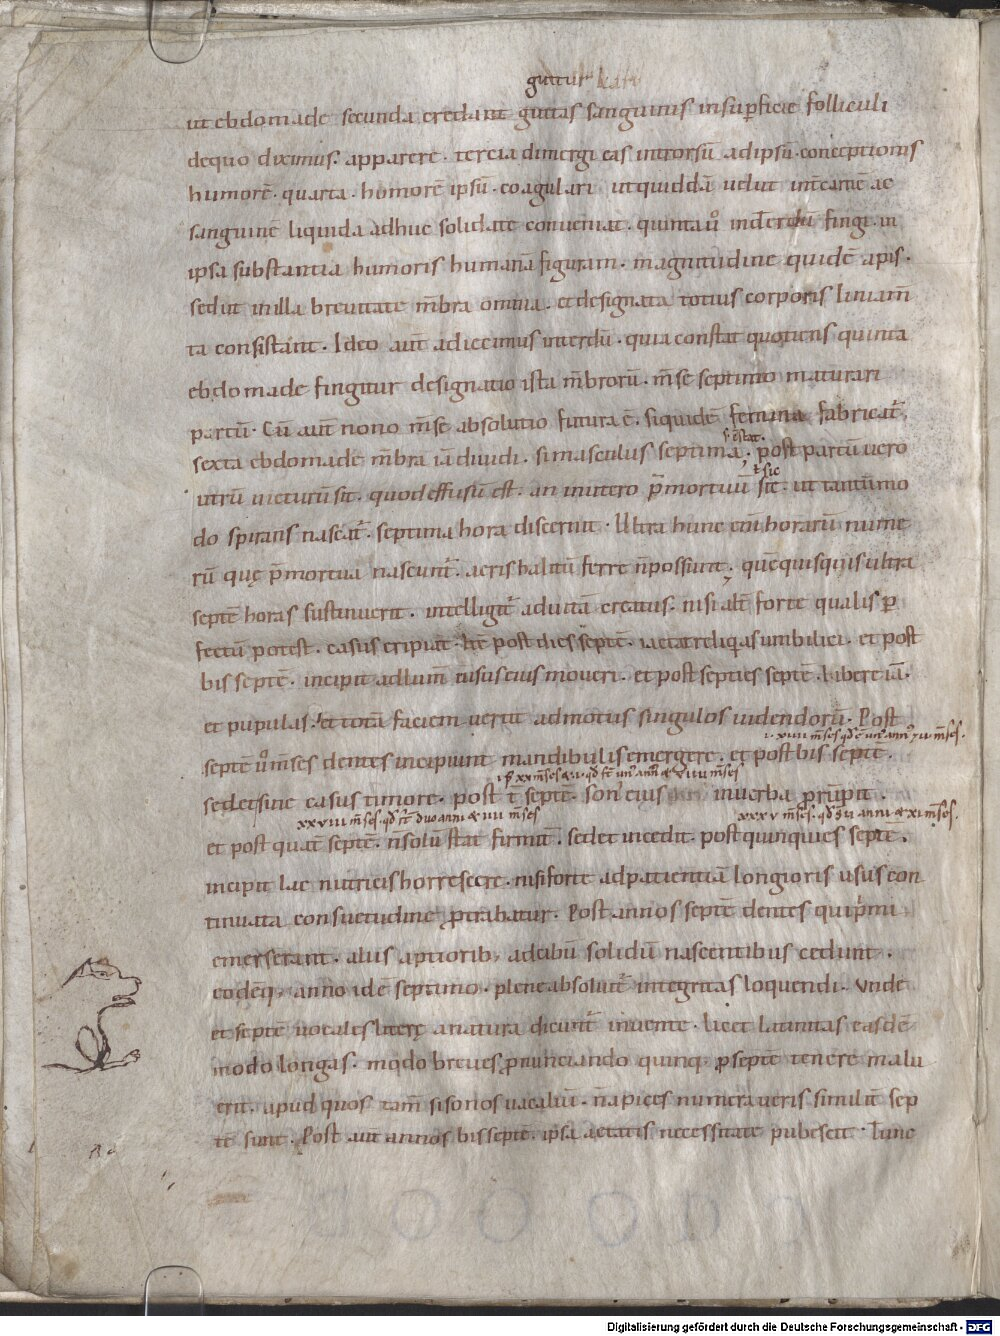 guttur
ut ebdomade secunda credant guttas sanguinis insuꝑficie folliculi
dequo diximus. apparere. tercia dimergi eas introrsū adipsū. conceptionis
humorē. quarta. humorē ipsū. coagulari utquiddā uelut int̄ carnē ac
sanguinē liquida adhuc solidate conueniat. quinta ů int̄erdū fingi. in
ipsa substantia humoris humanā figuram. magnitudine quidē apis.
sedut inilla breuitate m̄bra omnia. etdesignata totius corporis liniam̄
ta consistant. Ideo aut̄ adiecimus interdū. quia constat quotiens quinta
ebdomade fingitur designatio ista m̄brorū. m̄se septimo maturari
partū. Cū aut̄ nono m̄se absolutio futura ē. siquidē femina fabricat᷑.
sexta ebdomade m̄bra iā diuidi. simasculus septima. post partū uero
utrū uicturū sit. quod effusū est. an inutero p̄mortuū sit. ut tantūmo
do spirans nascat᷑. septima hora discernit. Ultra hunc em̄ horarū nume
rū quę p̄mortua nascunt᷑. aeris halitū ferre n̄possunt. quē quisquis ultra
septē horas sustinuerit. intelligit᷑ aduitā creatus. nisi alt̄ forte qualis ꝑ
fectū potest. casus eripiat. Itē post dies septē. iactat reliq̇as umbilici. et post
bis septē. incipit adlum̄ uisus eius moueri. et post septies septē. libere iā.
et pupulas. et totā faciem uertit admotus singulos uidendorū. Post
ı. xıııı m̄ses qđ ē un᷒ ann᷒ ⁊ıı m̄ses.
septē ů m̄ses dentes incipiunt mandibulis emergere. et post bis septē.
sedet sine casus timore. post t̄ septē. son᷒ eius inuerba prorūpit
xxvııı m̄ses. qđ st̄ duo anni & ıııı m̄ses
xxxv m̄ses. qđ st̄ ıı anni & xı m̄ses.
et post quat̄ septē. n̄solū stat firmit̄. sedet incedit. post quinquies septē.
incipit lac nutricis horrescere. nisi forte adpatientiā longioris usus con
tinuata consuetudine ꝓtrahatur. Post annos septē dentes qui p̄mi
emerserant. aliis aptiorib; adcibū solidū nascentibus cedunt.
eodēq; anno idē septimo. plene absoluit᷑ integritas loquendi. Vnde
et septē uocales literę anatura dicunt᷑ inuente. licet latinitas easdē
modo longas. modo breues ꝓnunciando quinq; ꝓseptē tenere malu
erit. apud quos tam̄ si sonos uocaliū. n̄ apices numeraueris similit̄ sep
tē sunt. Post aut̄ annos bis septē. ipsa aetatis necessitate pubescit. Tunc
Digitalisierung gefördert durch die Deutsche Forschungsgemeinschaft - DFG